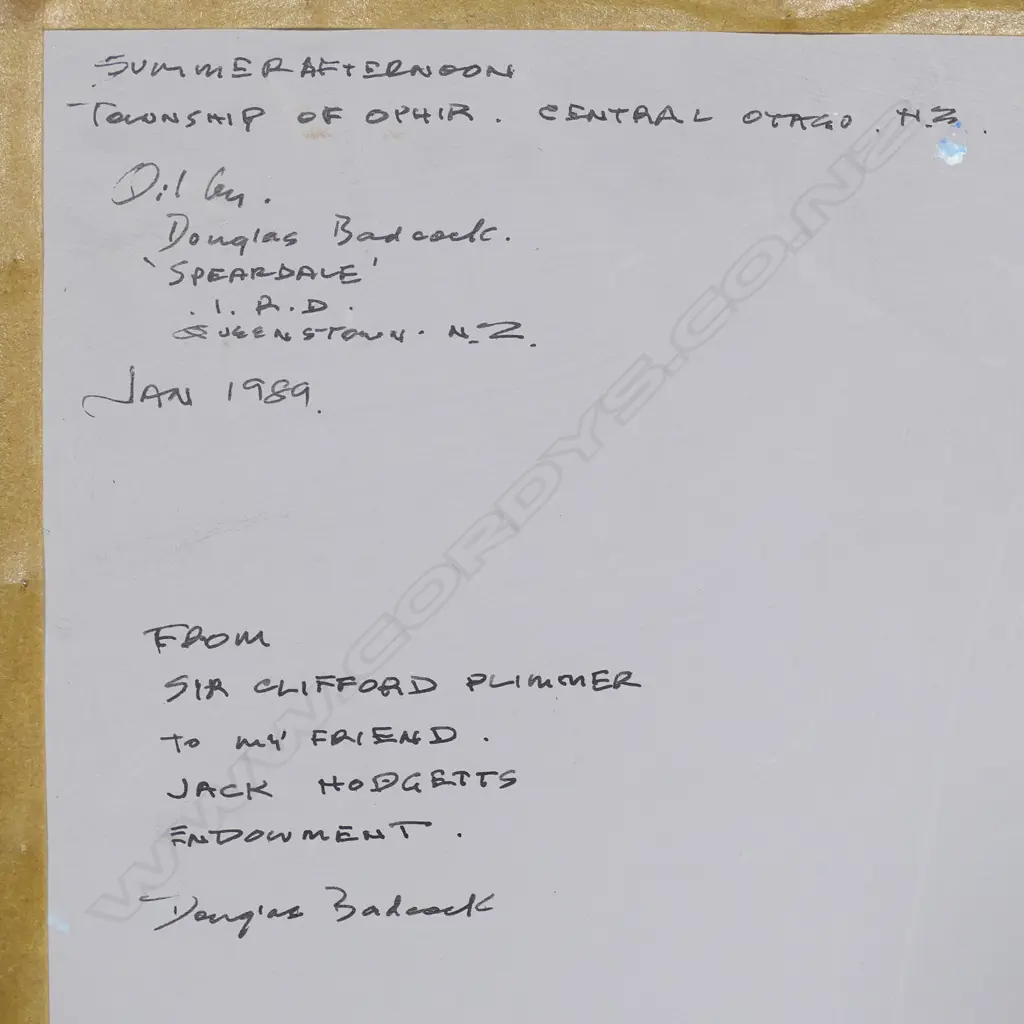 SUMMER AFTERNOON
TOWNSHIP OF OPHIR. CENTRAL OTAGO. N.Z.
Oil by.
Douglas Badcock.
'SPEARDALE'
. 1. R.D.
QUEENSTOWN. N.Z.
JAN 1989.
FROM
SIR CLIFFORD PLIMMER
TO MY FRIEND.
JACK HODGETTS
ENDOWMENT.
Douglas Badcock
WWW.CORDYS.CO.NZ